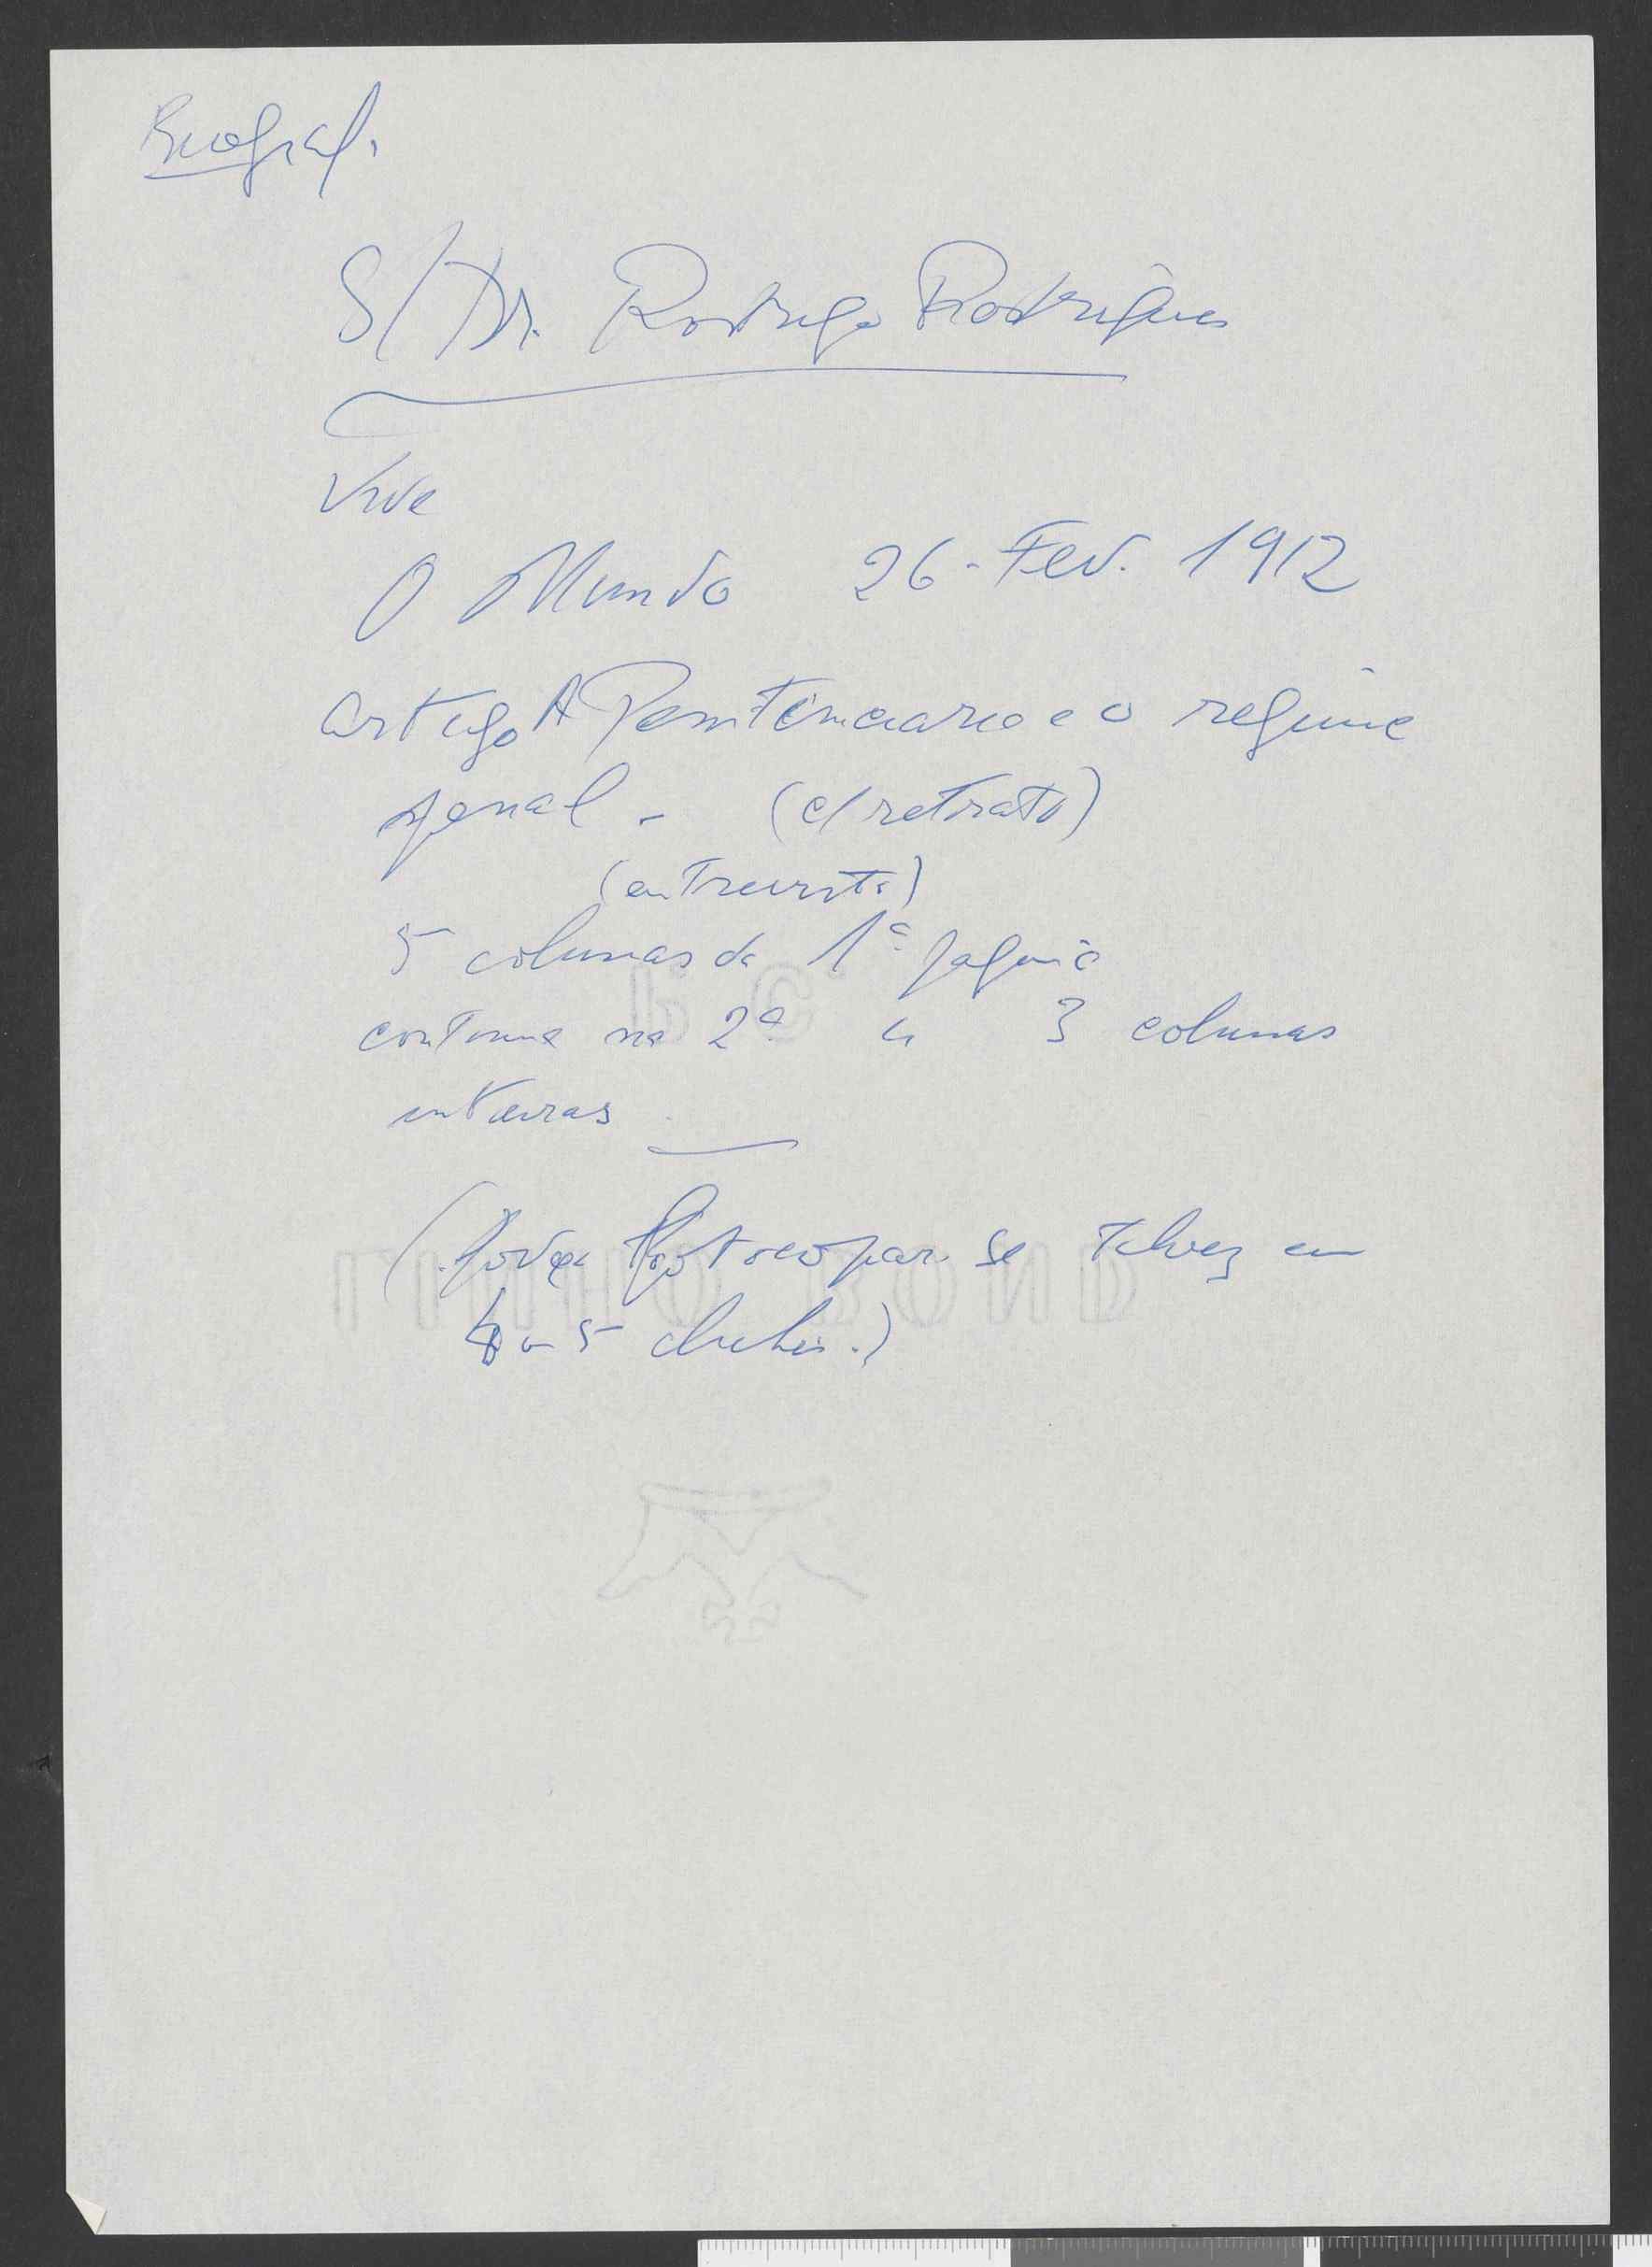 Biograf.
S/ Dr. Rodrigo Rodrigues
Vide
O Mundo 26-Fev. 1912
artigo A Penitenciaria e o regime
penal - (c/ retrato)
(entrevista)
5 colunas da 1ª pagina
continua na 2ª " 3 colunas
inteiras
fotocopiar se talvez em
4 ou 5 clichés.)
LINHO BOND